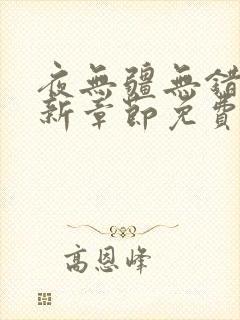 夜無疆無錯
新章節免費
高恩峰